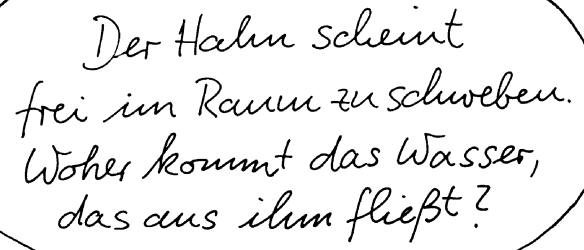 Der Hahn scheint
frei im Raum zu schweben.
Woher kommt das Wasser,
das aus ihm fließt?